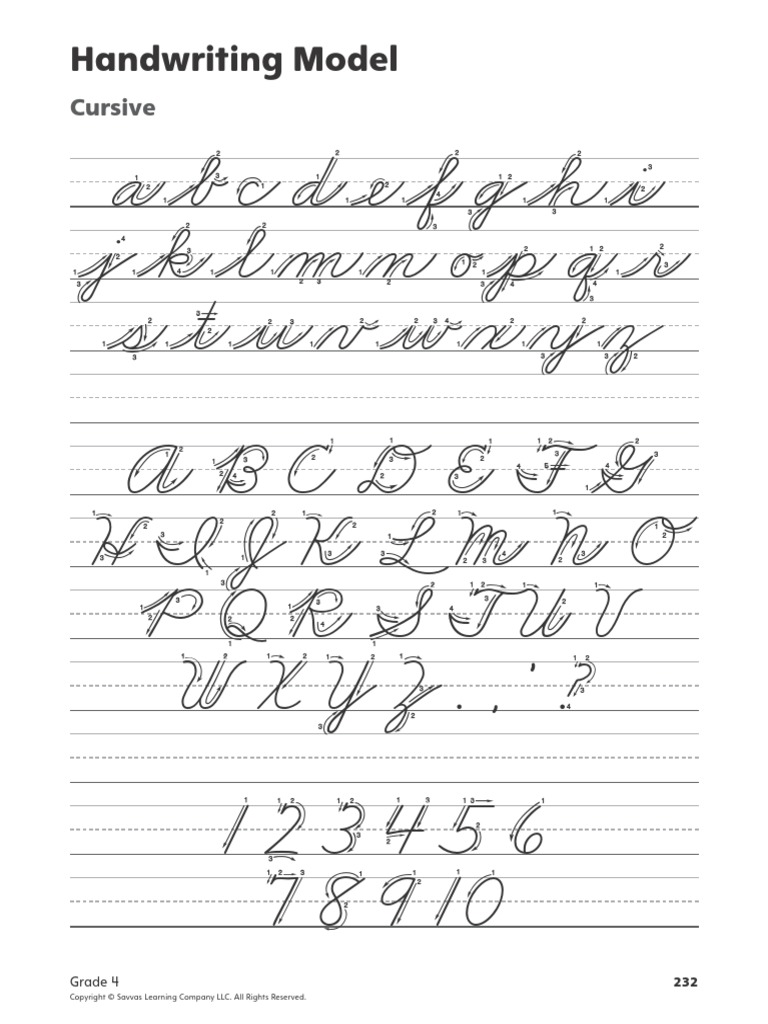 Handwriting Model
Cursive
a b c d e f g h i
j k l m n o p q r
s t u v w x y z
A B C D E F G
H I J K L M N O
P Q R S T U V
W X Y Z . , ' ?
1 2 3 4 5 6
7 8 9 10
Grade 4 232
Copyright © Savvas Learning Company LLC. All Rights Reserved.